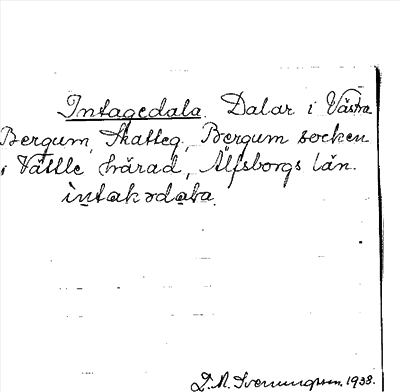 Intagedala. Dalar i Västra
Bergum, Skatteg, Bergum socken
i Vättle härad, Älfsborgs län.
ìntakədala.
D. A. Svenningsson. 1938.